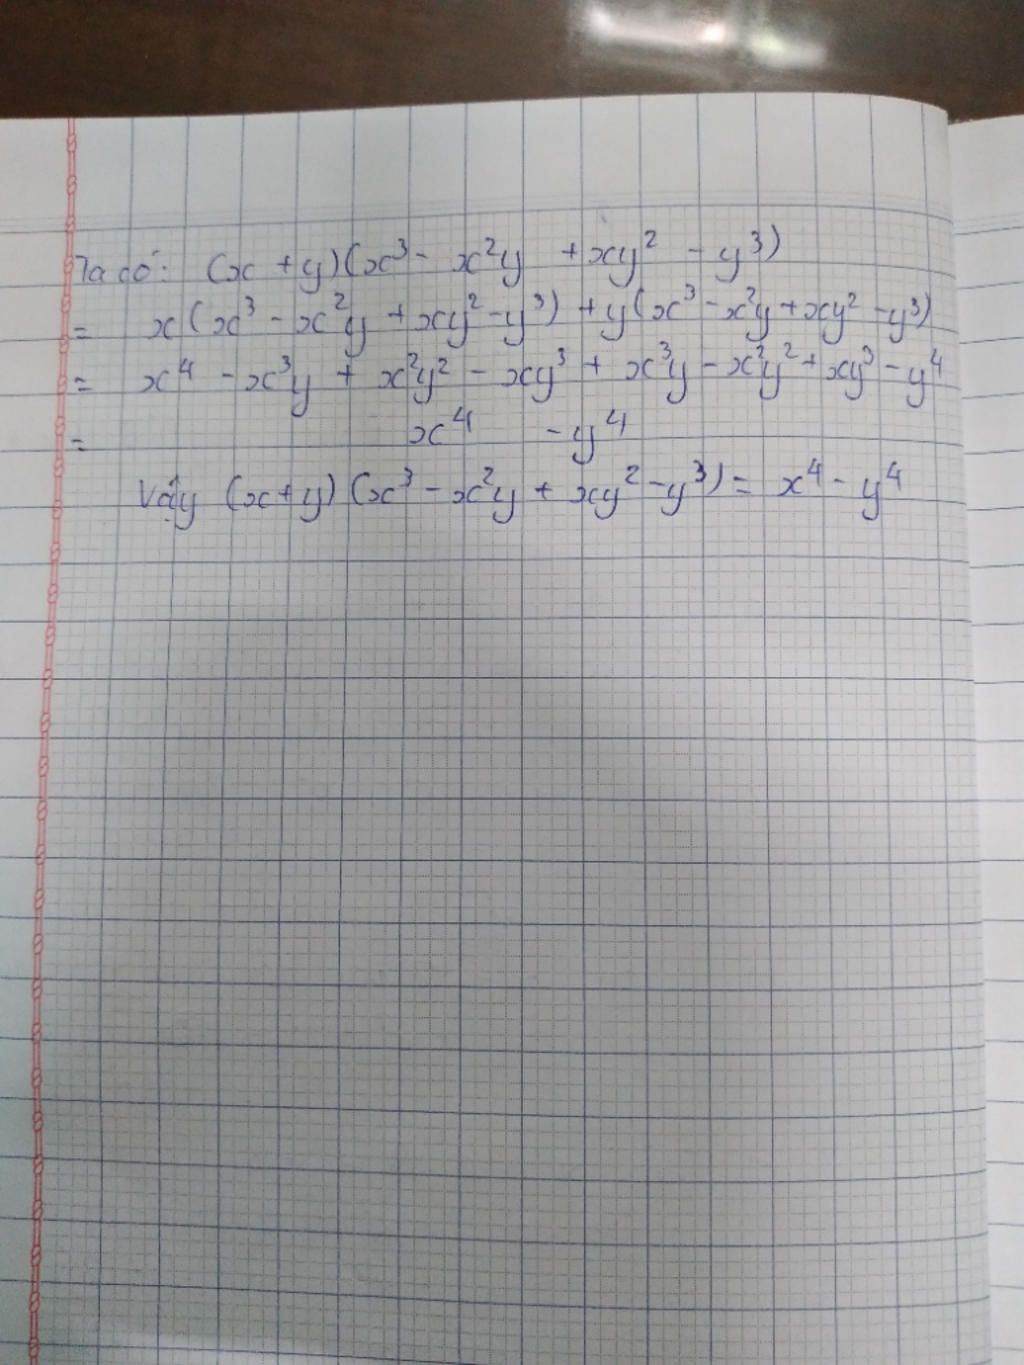 Ta có: (x + y)(x³ - x²y + xy² - y³)
= x(x³ - x²y + xy² - y³) + y(x³ - x²y + xy² - y³)
= x⁴ - x³y + x²y² - xy³ + x³y - x²y² + xy³ - y⁴
= x⁴ - y⁴
Vậy (x+y)(x³ - x²y + xy² - y³) = x⁴ - y⁴